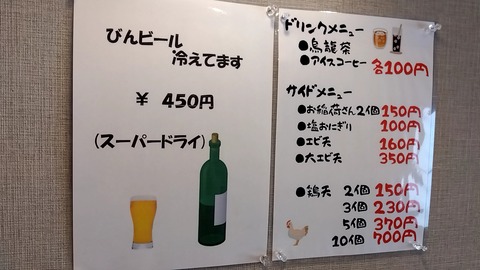 びんビール
冷えてます
¥ 450円
(スーパードライ)
ドリンクメニュー
●烏龍茶
●アイスコーヒー 各100円
サイドメニュー
●お稲荷さん2個 150円
●塩おにぎり 100円
●エビ天 160円
●大エビ天 350円
●鶏天 2個 150円
3個 230円
5個 370円
10個 700円